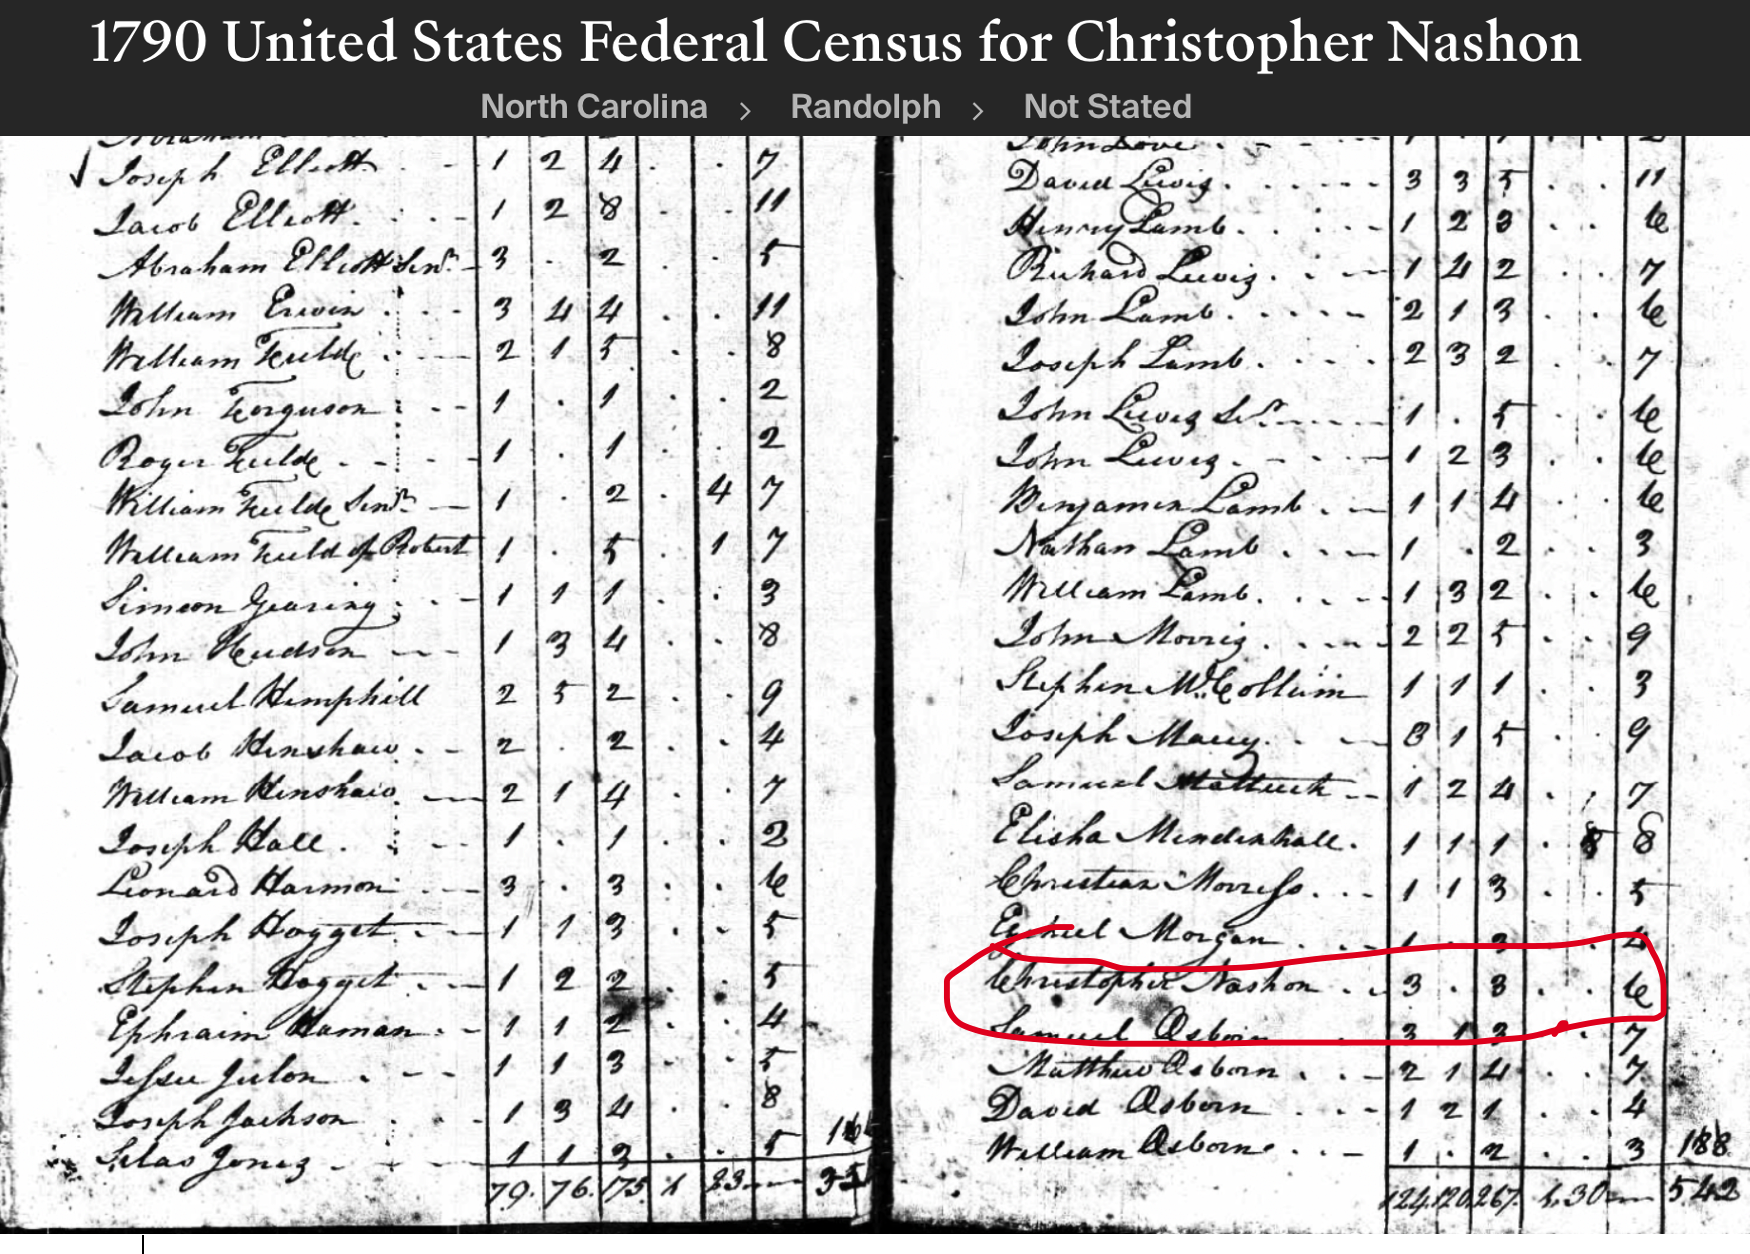 1790 United States Federal Census for Christopher Nashon
North Carolina > Randolph > Not Stated
Joseph Elliott - 1 2 4 . . 7
Jacob Elliott . . - - 1 2 8 . . 11
Abraham Elliott Senr. - 3 . 2 . . 5
William Erwin . . - 3 4 4 . . 11
William Feilde . - 2 1 5 . . 8
John Ferguson . - - 1 . 1 . . 2
Roger Feilde . - - - 1 . 1 . . 2
William Feilde Senr. - 1 . 2 . 4 7
William Feild of Robert 1 . 5 . 1 7
Simeon Gearing . . - 1 1 1 . . 3
John Hudson - - 1 3 4 . . 8
Samuel Hemphill 2 5 2 . . 9
Jacob Henshaw . - 2 . 2 . . 4
William Henshaw - 2 1 4 . . 7
Joseph Hall . . - 1 . 1 . . 2
Leonard Harmon . - 3 . 3 . . 6
Joseph Hogget . - 1 1 3 . . 5
Stephen Hogget . - 1 2 2 . . 5
Ephraim Haman . - 1 1 2 . . 4
Jesse Julon . - - 1 1 3 . . 5
Joseph Jackson . - 1 3 4 . . 8
Silas Jones - . - 1 1 3 . . 5
79. 76. 175. 1 23
John Love
David Lewis . . . . - - - 3 3 5 . . 11
Henry Lamb . . . . - 1 2 3 . . 6
Richard Lewis . . - - 1 4 2 . . 7
John Lamb . . . . - 2 1 3 . . 6
Joseph Lamb . . . - 2 3 2 . . 7
John Lewis Sr. - - - 1 . 5 . . 6
John Lewis . - - - 1 2 3 . . 6
Benjamin Lamb . - 1 1 4 . . 6
Nathan Lamb . . . - 1 . 2 . . 3
William Lamb . . . - 1 3 2 . . 6
John Morris . . . - 2 2 5 . . 9
Stephen McCollum 1 1 1 . . 3
Joseph Macey . . - 3 1 5 . . 9
Samuel Mattuck - - 1 2 4 . . 7
Elisha Mendenhall . 1 1 1 . 8 8
Christian Morress . . . 1 1 3 . . 5
Morgan . . - 1 . 3 . . 4
Christopher Nashon . . 3 . 3 . . 6
Samuel Osborn 3 1 3 . . 7
Matthew Osborn . . - 2 1 4 . . 7
David Osborn . . - 1 2 1 . . 4
William Osborne . . - 1 . 2 . . 3 188
124. 120. 267. 1. 30 542